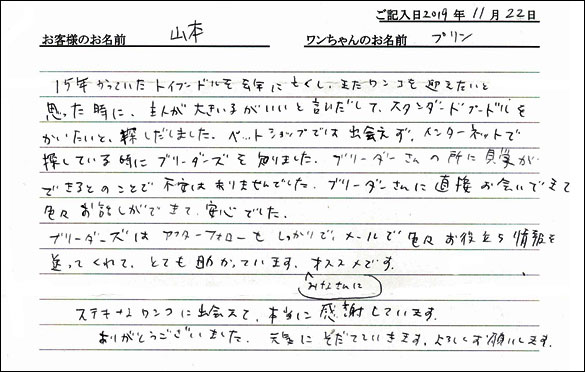 ご記入日2019年11月22日
お客様のお名前 山本 ワンちゃんのお名前 プリン
15年かっていたトイプードルを去年に亡くし、またワンコを迎えたいと
思った時に、主人が大きい子がいいと言いだして、スタンダードプードルを
かいたいと、探しだしました。ペットショップでは出会えず、インターネットで
探している時にブリーダーズを知りました。ブリーダーさんの所に見学が
できるとのことで不安はありませんでした。ブリーダーさんに直接お会いできて
色々お話しができて、安心でした。
ブリーダーズはアフターフォローもしっかりで、メールで色々お役立ち情報を
送ってくれて、とても助かっています。オススメです。
みなさんに
ステキなワンコに出会えて、本当に感謝しています。
ありがとうございました。元気にそだてていきます。よろしくお願いします。